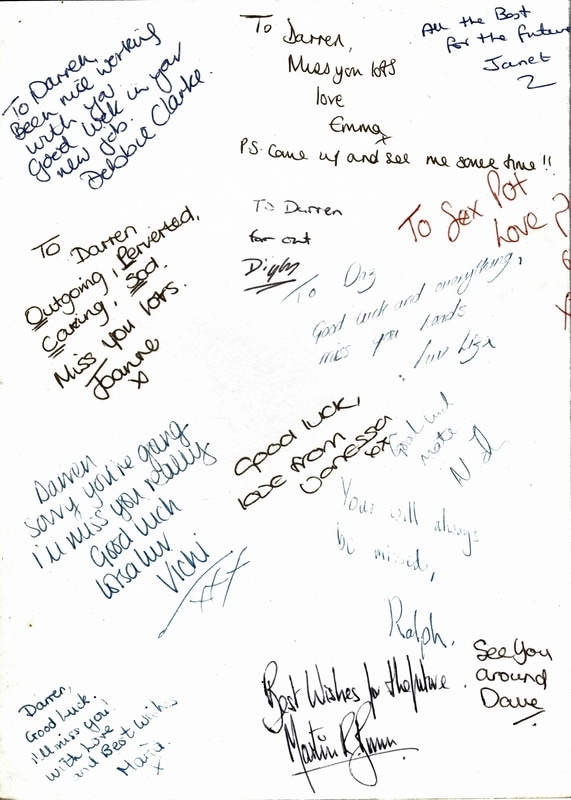 To Darren,
Been nice working
with you
Good luck in your
new job.
Debbie Clarke.
To Darren,
Miss you lots
love
Emma
x
P.S. Come up and see me some time!!
All the Best
for the future
Janet
2
To Darren
far out
To Sex Pot
Love
To Darren
Outgoing, Perverted,
Caring, Sod.
Miss you lots.
Joanne
x
To Daz
Good luck and everything,
miss you loads
luv Liza
Good luck,
love from
Vanessa
xxx
Good luck
mate
Darren
Sorry you're going
I'll miss you really
Good luck
lotsa luv
Vicki
xxx
You will always
be missed,
Ralph.
See You
around
Dave
Best Wishes for the future.
Martin
Darren,
Good Luck.
I'll miss you!
with Love
and Best Wishes
Maria.
x